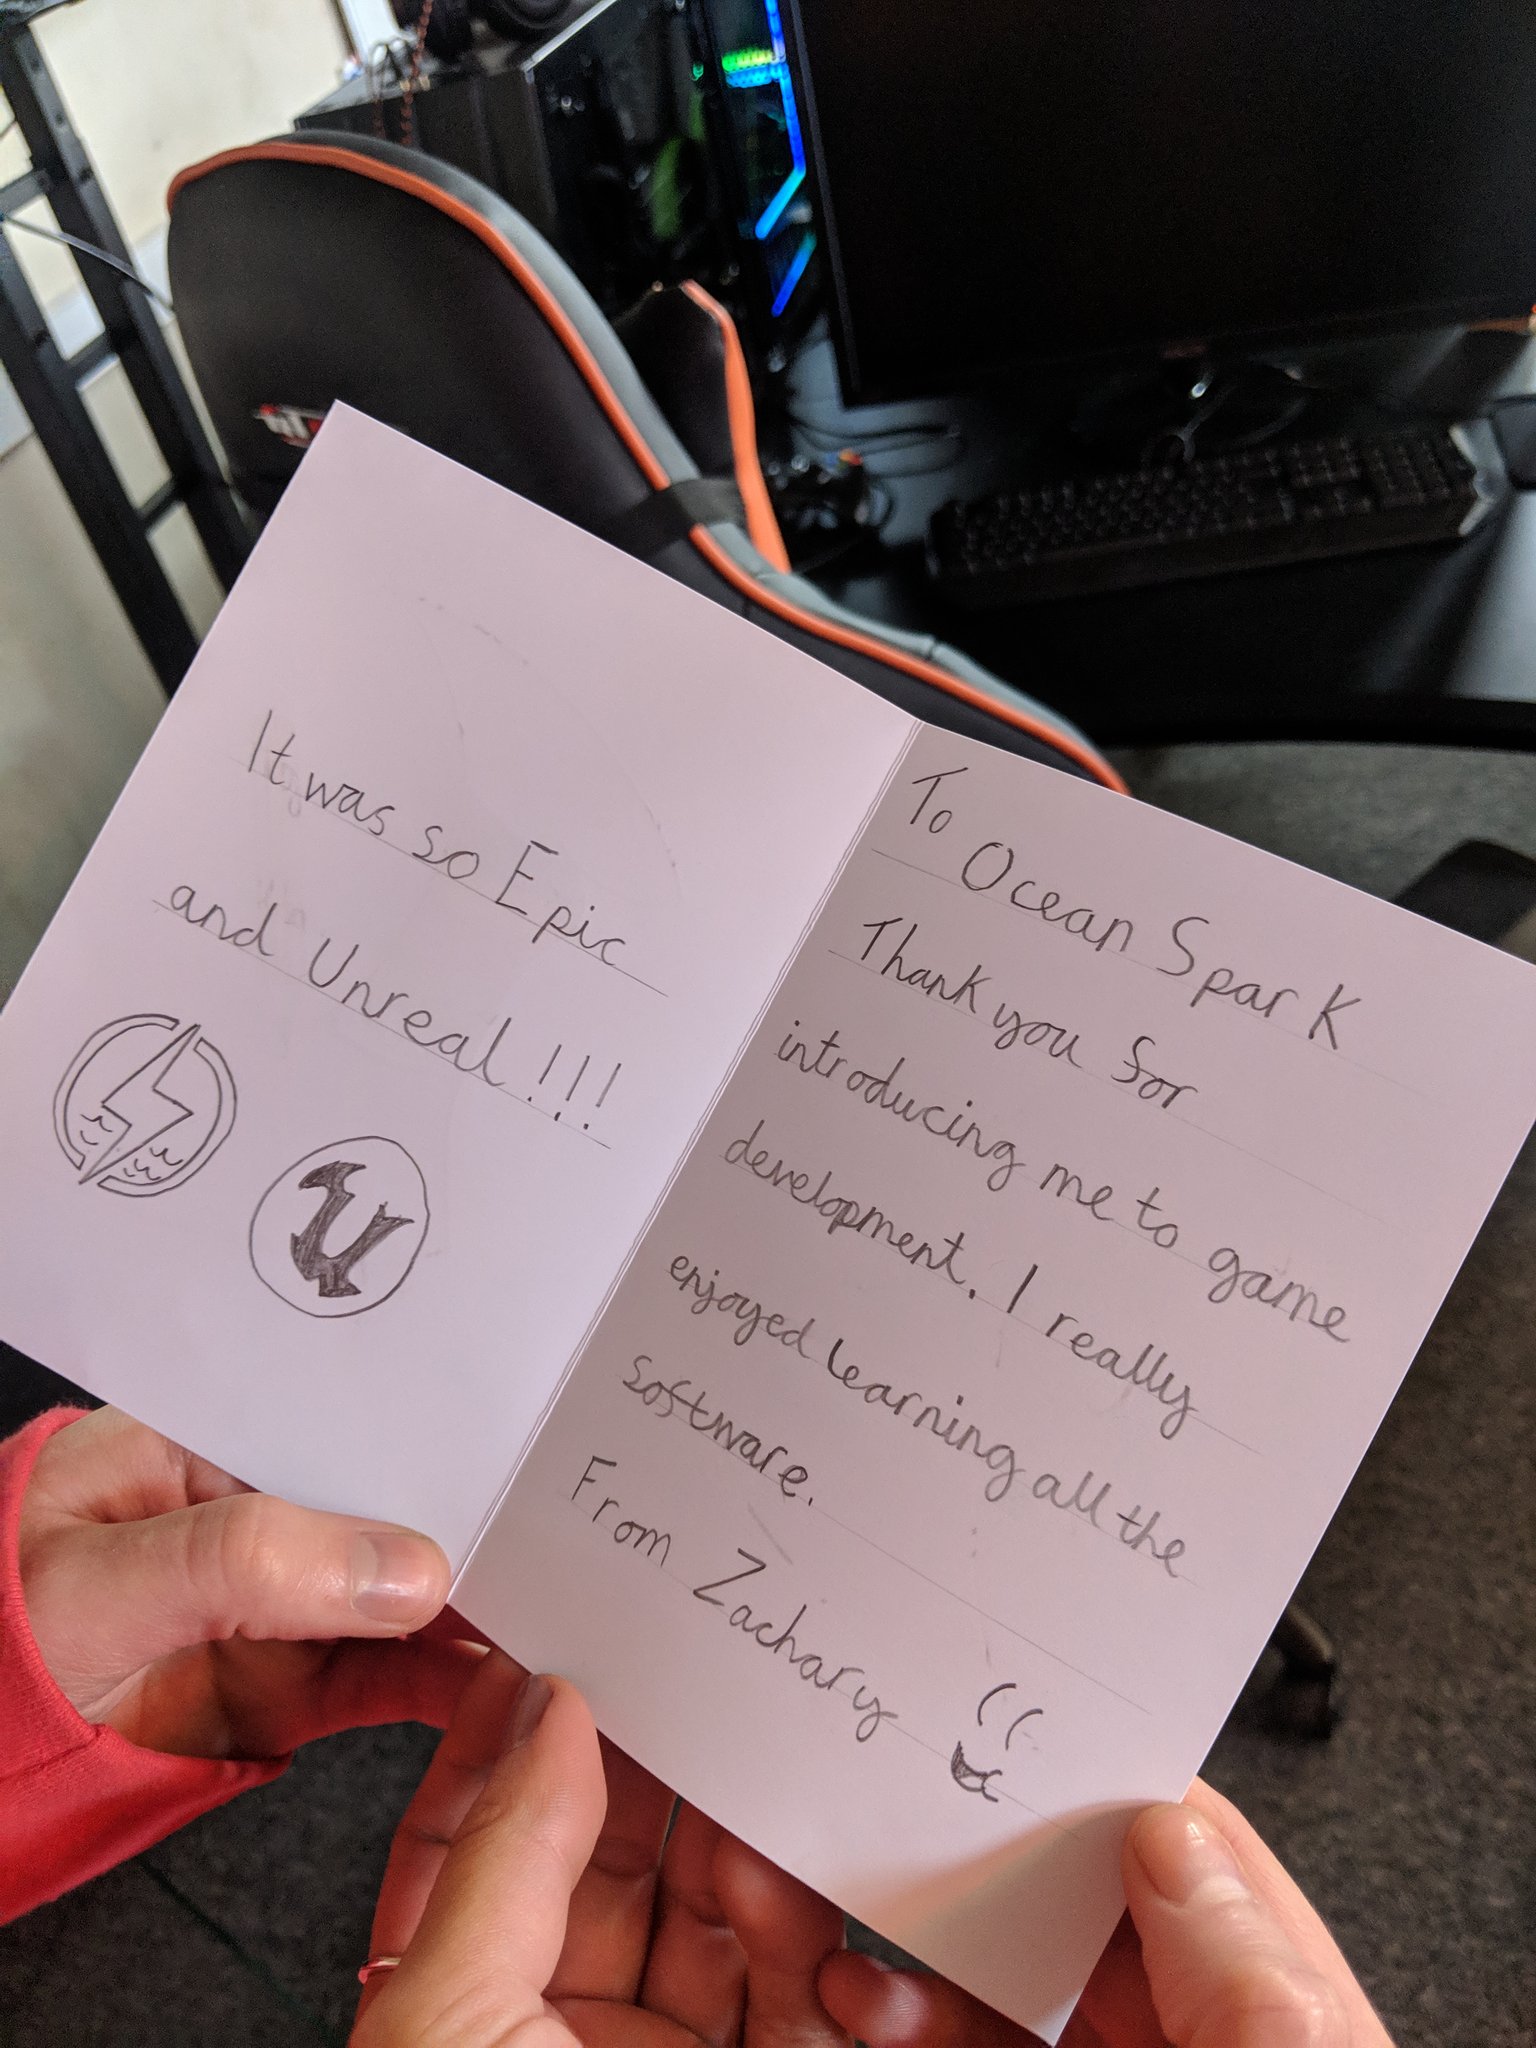 It was so Epic
and Unreal!!!
To Ocean Spark
Thank you for
introducing me to game
development. I really
enjoyed learning all the
software.
From Zachary